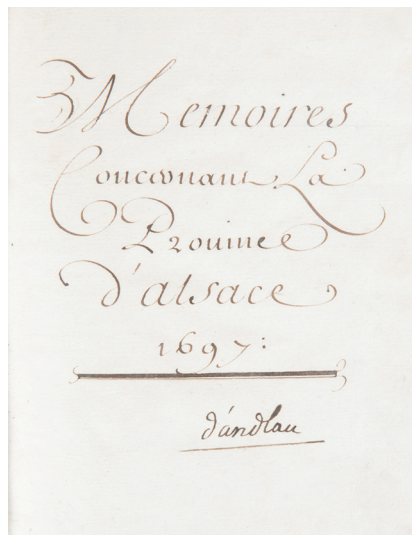 Memoires
Concernant La
Prouince
d'alsace
1697:
d'andlau